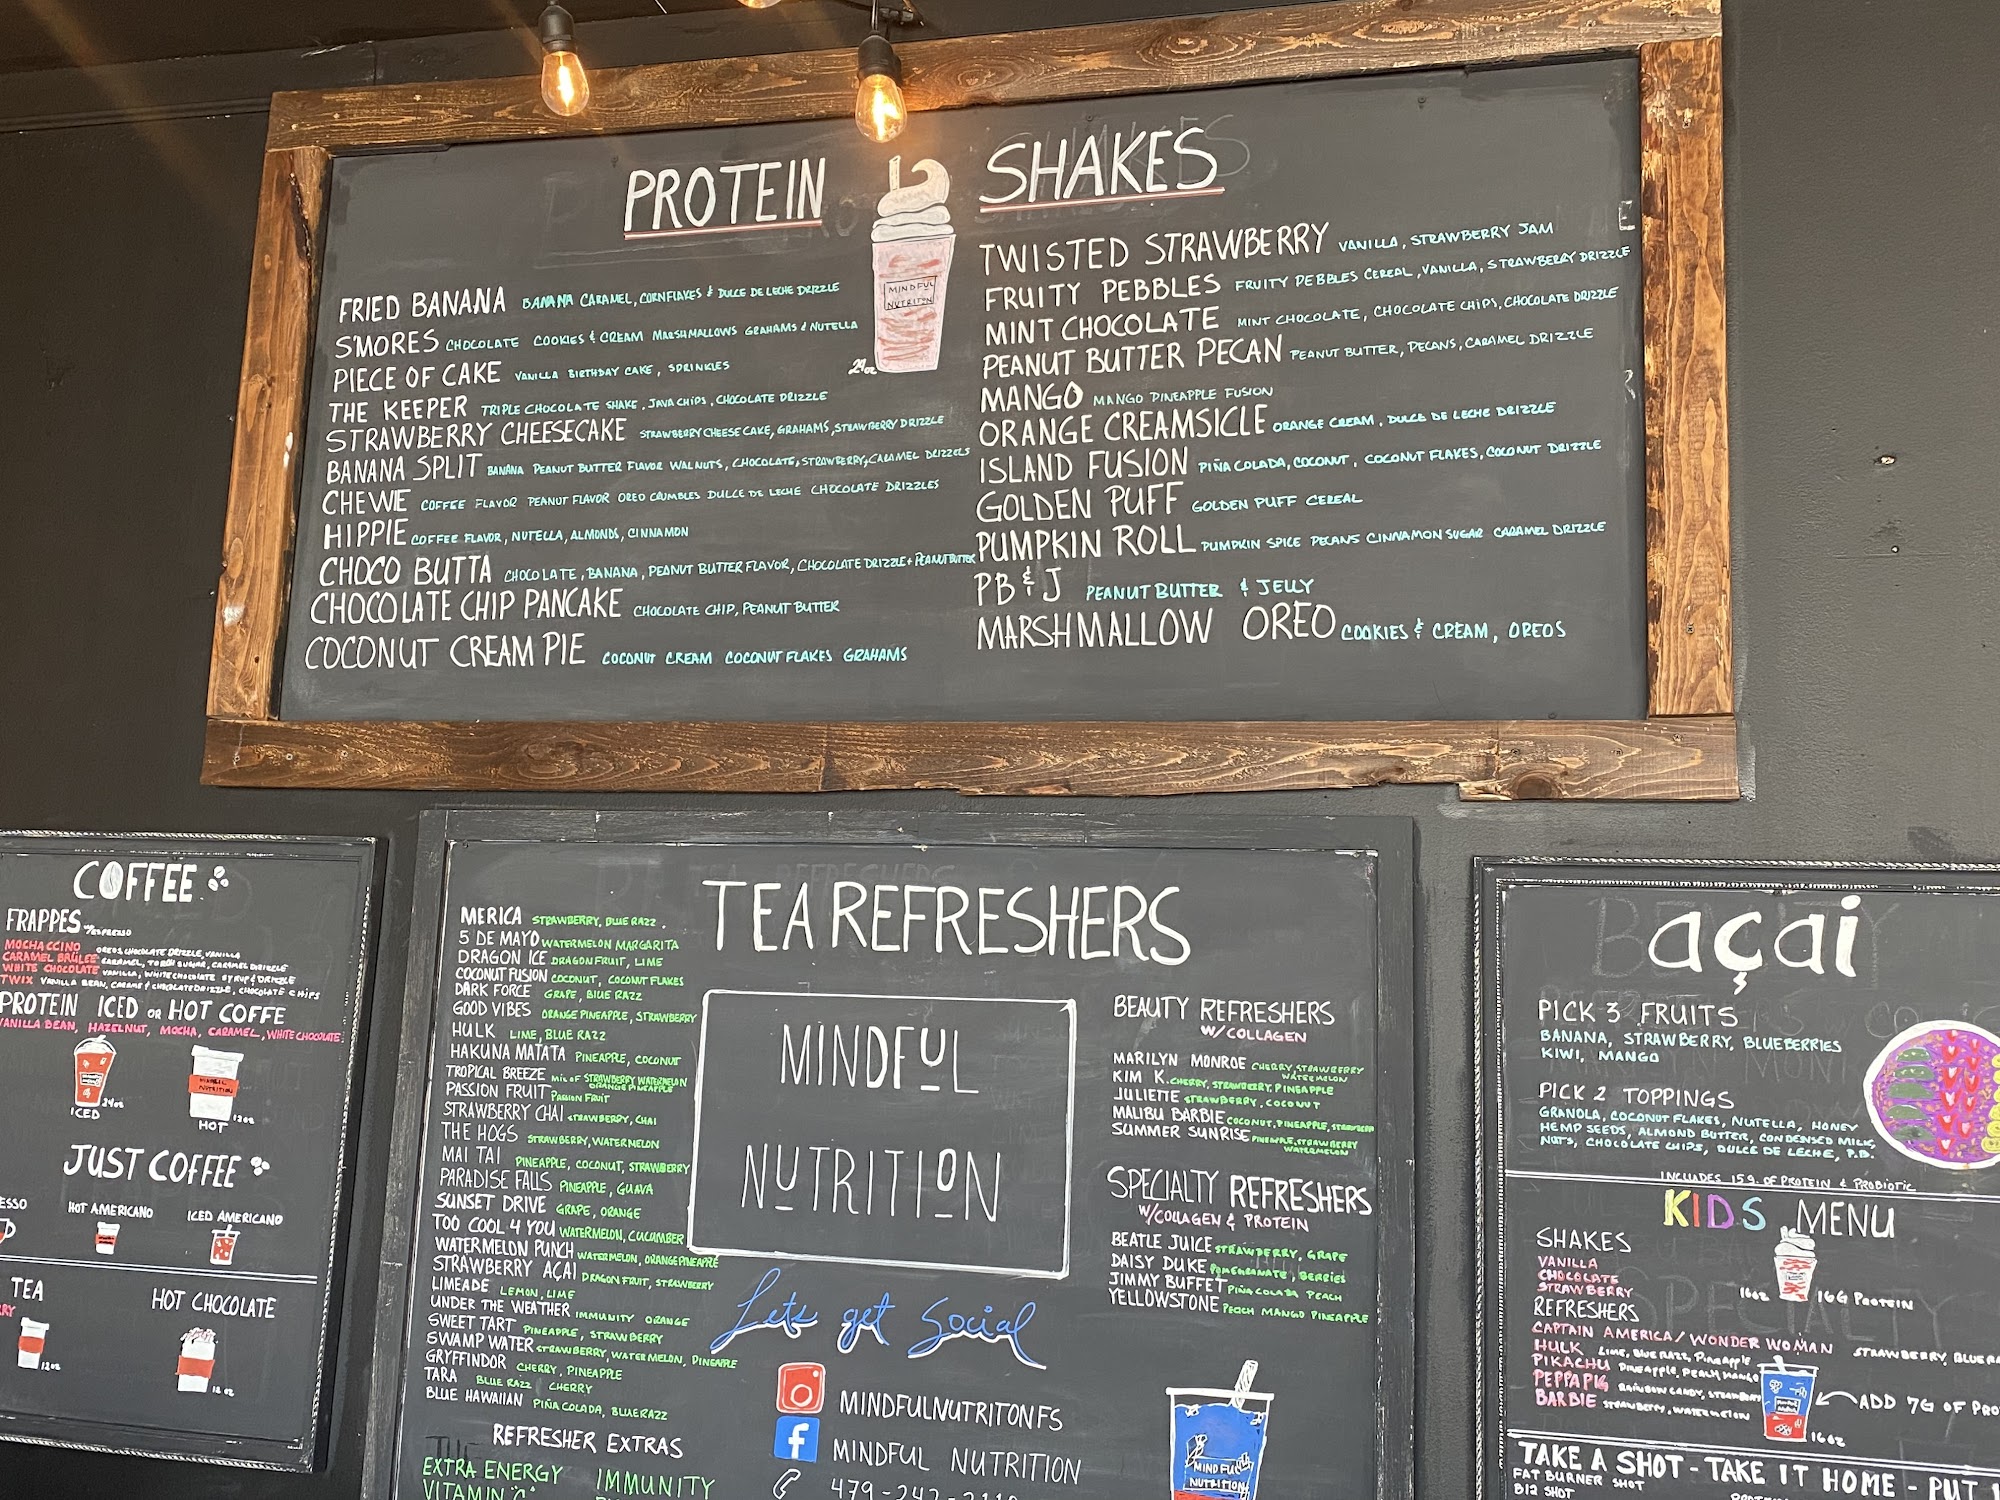 PROTEIN SHAKES
MINDFUL
NUTRITON
24oz
FRIED BANANA BANANA CARAMEL, CORNFLAKES & DULCE DE LECHE DRIZZLE
S'MORES CHOCOLATE COOKIES & CREAM MARSHMALLOWS GRAHAMS & NUTELLA
PIECE OF CAKE VANILLA BIRTHDAY CAKE, SPRINKLES
THE KEEPER TRIPLE CHOCOLATE SHAKE, JAVA CHIPS, CHOCOLATE DRIZZLE
STRAWBERRY CHEESECAKE STRAWBERRY CHEESE CAKE, GRAHAMS, STRAWBERRY DRIZZLE
BANANA SPLIT BANANA PEANUT BUTTER FLAVOR WALNUTS, CHOCOLATE, STRAWBERRY, CARAMEL DRIZZLES
CHEWIE COFFEE FLAVOR PEANUT FLAVOR OREO CRUMBLES DULCE DE LECHE CHOCOLATE DRIZZLES
HIPPIE COFFEE FLAVOR, NUTELLA, ALMONDS, CINNAMON
CHOCO BUTTA CHOCOLATE, BANANA, PEANUT BUTTER FLAVOR, CHOCOLATE DRIZZLE + PEANUT BUTTER
CHOCOLATE CHIP PANCAKE CHOCOLATE CHIP, PEANUT BUTTER
COCONUT CREAM PIE COCONUT CREAM COCONUT FLAKES GRAHAMS
TWISTED STRAWBERRY VANILLA, STRAWBERRY JAM
FRUITY PEBBLES FRUITY PEBBLES CEREAL, VANILLA, STRAWBERRY DRIZZLE
MINT CHOCOLATE MINT CHOCOLATE, CHOCOLATE CHIPS, CHOCOLATE DRIZZLE
PEANUT BUTTER PECAN PEANUT BUTTER, PECANS, CARAMEL DRIZZLE
MANGO MANGO PINEAPPLE FUSION
ORANGE CREAMSICLE ORANGE CREAM, DULCE DE LECHE DRIZZLE
ISLAND FUSION PIÑA COLADA, COCONUT, COCONUT FLAKES, COCONUT DRIZZLE
GOLDEN PUFF GOLDEN PUFF CEREAL
PUMPKIN ROLL PUMPKIN SPICE PECANS CINNAMON SUGAR CARAMEL DRIZZLE
PB & J PEANUT BUTTER & JELLY
MARSHMALLOW OREO COOKIES & CREAM, OREOS
COFFEE
FRAPPES W/ ESPRESSO
MOCHACCINO OREOS, CHOCOLATE DRIZZLE, VANILLA
CARAMEL BRÛLÉE CARAMEL, TORCH SUGAR, CARAMEL DRIZZLE
WHITE CHOCOLATE VANILLA, WHITE CHOCOLATE SYRUP & DRIZZLE
TWIX VANILLA BEAN, CARAMEL & CHOCOLATE DRIZZLE, CHOCOLATE CHIPS
PROTEIN ICED OR HOT COFFE
VANILLA BEAN, HAZELNUT, MOCHA, CARAMEL, WHITE CHOCOLATE
24oz
ICED
12oz
HOT
JUST COFFEE
ESSO
HOT AMERICANO
ICED AMERICANO
TEA
RRY
12oz
HOT CHOCOLATE
12 oz
TEA REFRESHERS
MERICA STRAWBERRY, BLUE RAZZ.
5 DE MAYO WATERMELON MARGARITA
DRAGON ICE DRAGON FRUIT, LIME
COCONUT FUSION COCONUT, COCONUT FLAKES
DARK FORCE GRAPE, BLUE RAZZ
GOOD VIBES ORANGE PINEAPPLE, STRAWBERRY
HULK LIME, BLUE RAZZ
HAKUNA MATATA PINEAPPLE, COCONUT
TROPICAL BREEZE MIX OF STRAWBERRY WATERMELON
ORANGE PINEAPPLE
PASSION FRUIT PASSION FRUIT
STRAWBERRY CHAI STRAWBERRY, CHAI
THE HOGS STRAWBERRY, WATERMELON
MAI TAI PINEAPPLE, COCONUT, STRAWBERRY
PARADISE FALLS PINEAPPLE, GUAVA
SUNSET DRIVE GRAPE, ORANGE
TOO COOL 4 YOU WATERMELON, CUCUMBER
WATERMELON PUNCH WATERMELON, ORANGE PINEAPPLE
STRAWBERRY AÇAI DRAGON FRUIT, STRAWBERRY
LIMEADE LEMON, LIME
UNDER THE WEATHER IMMUNITY ORANGE
SWEET TART PINEAPPLE, STRAWBERRY
SWAMP WATER STRAWBERRY, WATERMELON, PINEAPPLE
GRYFFINDOR CHERRY, PINEAPPLE
TARA BLUE RAZZ CHERRY
BLUE HAWAIIAN PIÑA COLADA, BLUERAZZ
REFRESHER EXTRAS
EXTRA ENERGY IMMUNITY
VITAMIN "C"
MINDFUL
NUTRITION
Lets get Social
MINDFULNUTRITONFS
MINDFUL NUTRITION
479-242-2110
BEAUTY REFRESHERS
W/ COLLAGEN
MARILYN MONROE CHERRY, STRAWBERRY
WATERMELON
KIM K. CHERRY, STRAWBERRY, PINEAPPLE
JULIETTE STRAWBERRY, COCONUT
MALIBU BARBIE COCONUT, PINEAPPLE, STRAWBERRY
SUMMER SUNRISE PINEAPPLE, STRAWBERRY
WATERMELON
SPECIALTY REFRESHERS
W/COLLAGEN & PROTEIN
BEATLE JUICE STRAWBERRY, GRAPE
DAISY DUKE POMEGRANATE, BERRIES
JIMMY BUFFET PIÑA COLADA PEACH
YELLOWSTONE PEACH MANGO PINEAPPLE
MINDFUL
NUTRITION
açai
PICK 3 FRUITS
BANANA, STRAWBERRY, BLUEBERRIES
KIWI, MANGO
PICK 2 TOPPINGS
GRANOLA, COCONUT FLAKES, NUTELLA, HONEY
HEMP SEEDS, ALMOND BUTTER, CONDENSED MILK,
NUTS, CHOCOLATE CHIPS, DULCE DE LECHE, P.B.
INCLUDES 15g. OF PROTEIN & PROBIOTIC
KIDS MENU
SHAKES
VANILLA
CHOCOLATE
STRAWBERRY
16oz
16G PROTEIN
REFRESHERS
CAPTAIN AMERICA/WONDER WOMAN STRAWBERRY, BLUERA
HULK LIME, BLUE RAZZ, PINEAPPLE
PIKACHU PINEAPPLE, PEACH MANGO
PEPPA PIG RAINBOW CANDY, STRAWBERRY
BARBIE STRAWBERRY, WATERMELON
ADD 7G OF PRO
16oz
TAKE A SHOT - TAKE IT HOME - PUT
FAT BURNER SHOT
B12 SHOT